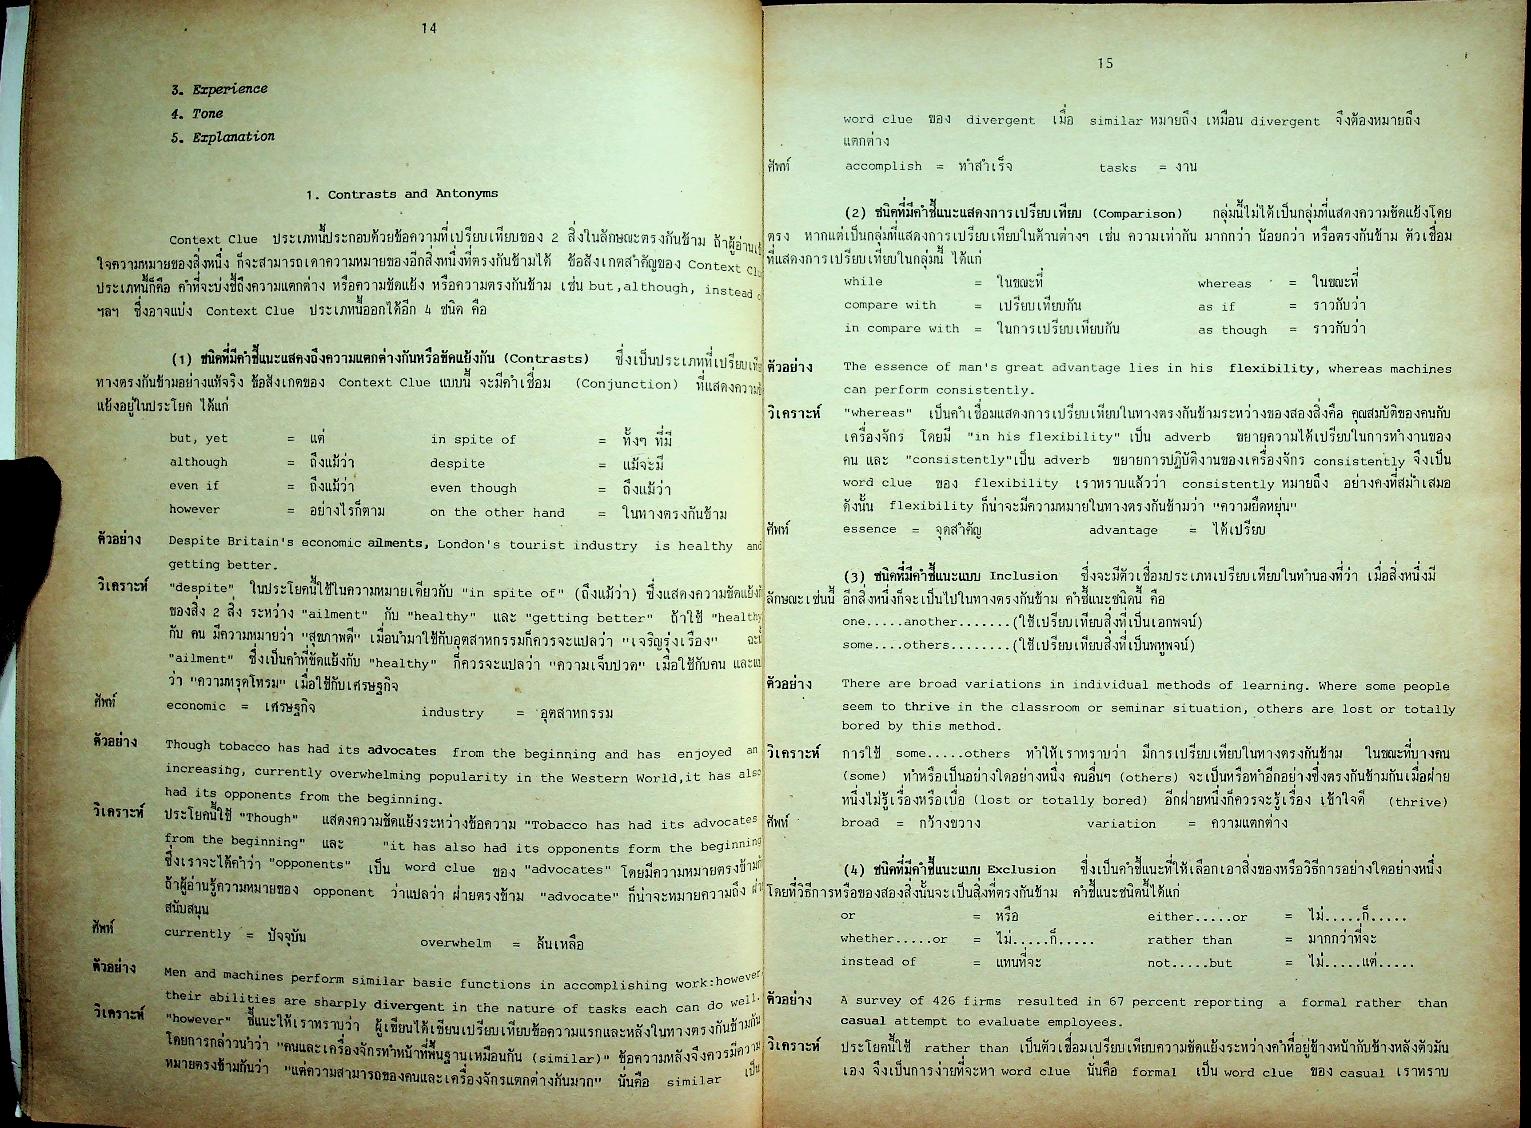 14
3. Experience
4. Tone
5. Explanation
1. Contrasts and Antonyms
Context Clue ประเภทนี้ประกอบด้วยข้อความที่เปรียบเทียบของ 2 สิ่งในลักษณะตรงกันข้าม ถ้าผู้อ่าน
ใจความหมายของสิ่งหนึ่ง ก็จะสามารถเดาความหมายของอีกสิ่งหนึ่งที่ตรงกันข้ามได้ ข้อสังเกตสำคัญของ Context
ประเภทนี้ก็คือ คำที่จะบ่งชี้ถึงความแตกต่าง หรือความขัดแย้ง หรือความตรงกันข้าม เช่น but,although, instead
ฯลฯ ซึ่งอาจแบ่ง Context Clue ประเภทนี้ออกได้อีก 4 ชนิด คือ
(1) ชนิดที่มีคำชี้แนะแสดงถึงความแตกต่างกันหรือขัดแย้งกัน (Contrasts) ซึ่งเป็นประเภทที่เปรียบ
ทางตรงกันข้ามอย่างแท้จริง ข้อสังเกตของ Context Clue แบบนี้ จะมีคำเชื่อม (Conjunction) ที่แสดงความ
แย้งอยู่ในประโยค ได้แก่
but, yet = แต่ in spite of = ทั้งๆ ที่มี
although = ถึงแม้ว่า despite = แม้จะมี
even if = ถึงแม้ว่า even though = ถึงแม้ว่า
however = อย่างไรก็ตาม on the other hand = ในทางตรงกันข้าม
ตัวอย่าง Despite Britain's economic ailments, London's tourist industry is healthy and
getting better.
วิเคราะห์ "despite" ในประโยคนี้ใช้ในความหมายเดียวกับ "in spite of" (ถึงแม้ว่า) ซึ่งแสดงความขัดแย้ง
ของสิ่ง 2 สิ่ง ระหว่าง "ailment" กับ "healthy" และ "getting better" ถ้าใช้ "healthy
กับ คน มีความหมายว่า "สุขภาพดี" เมื่อนำมาใช้กับอุตสาหกรรมก็ควรจะแปลว่า "เจริญรุ่งเรือง"
"ailment" ซึ่งเป็นคำที่ขัดแย้งกับ "healthy" ก็ควรจะแปลว่า "ความเจ็บปวด" เมื่อใช้กับคน และ
ว่า "ความทรุดโทรม" เมื่อใช้กับเศรษฐกิจ
ศัพท์ economic = เศรษฐกิจ industry = อุตสาหกรรม
ตัวอย่าง Though tobacco has had its advocates from the beginning and has enjoyed an
increasing, currently overwhelming popularity in the Western World,it has also
had its opponents from the beginning.
วิเคราะห์ ประโยคนี้ใช้ "Though" แสดงความขัดแย้งระหว่างข้อความ "Tobacco has had its advocates
from the beginning" และ "it has also had its opponents form the beginning
ซึ่งเราจะได้คำว่า "opponents" เป็น word clue ของ "advocates" โดยมีความหมายตรงข้าม
ถ้าผู้อ่านรู้ความหมายของ opponent ว่าแปลว่า ฝ่ายตรงข้าม "advocate" ก็น่าจะหมายความถึง
สนับสนุน
ศัพท์ currently = ปัจจุบัน overwhelm = ล้นเหลือ
ตัวอย่าง Men and machines perform similar basic functions in accomplishing work:however
their abilities are sharply divergent in the nature of tasks each can do well.
วิเคราะห์ "however" ชี้แนะให้เราทราบว่า ผู้เขียนได้เขียนเปรียบเทียบข้อความแรกและหลังในทางตรงกันข้ามกัน
โดยการกล่าวนำว่า "คนและเครื่องจักรทำหน้าที่พื้นฐานเหมือนกัน (similar)" ข้อความหลังจึงควรมีความ
หมายตรงข้ามกันว่า "แต่ความสามารถของคนและเครื่องจักรแตกต่างกันมาก" นั่นคือ similar เป็น
15
word clue ของ divergent เมื่อ similar หมายถึง เหมือน divergent จึงต้องหมายถึง
แตกต่าง
ศัพท์ accomplish = ทำสำเร็จ tasks = งาน
(2) ชนิดที่มีคำชี้แนะแสดงการเปรียบเทียบ (Comparison) กลุ่มนี้ไม่ได้เป็นกลุ่มที่แสดงความขัดแย้งโดย
ตรง หากแต่เป็นกลุ่มที่แสดงการเปรียบเทียบในด้านต่างๆ เช่น ความเท่ากัน มากกว่า น้อยกว่า หรือตรงกันข้าม ตัวเชื่อม
ที่แสดงการเปรียบเทียบในกลุ่มนี้ ได้แก่
while = ในขณะที่ whereas = ในขณะที่
compare with = เปรียบเทียบกัน as if = ราวกับว่า
in compare with = ในการเปรียบเทียบกัน as though = ราวกับว่า
ตัวอย่าง The essence of man's great advantage lies in his flexibility, whereas machines
can perform consistently.
วิเคราะห์ "whereas" เป็นคำเชื่อมแสดงการเปรียบเทียบในทางตรงกันข้ามระหว่างของสองสิ่งคือ คุณสมบัติของคนกับ
เครื่องจักร โดยมี "in his flexibility" เป็น adverb ขยายความได้เปรียบในการทำงานของ
คน และ "consistently"เป็น adverb ขยายการปฏิบัติงานของเครื่องจักร consistently จึงเป็น
word clue ของ flexibility เราทราบแล้วว่า consistently หมายถึง อย่างคงที่สม่ำเสมอ
ดังนั้น flexibility ก็น่าจะมีความหมายในทางตรงกันข้ามว่า "ความยืดหยุ่น"
ศัพท์ essence = จุดสำคัญ advantage = ได้เปรียบ
(3) ชนิดที่มีคำชี้แนะแบบ Inclusion ซึ่งจะมีตัวเชื่อมประเภทเปรียบเทียบในทำนองที่ว่า เมื่อสิ่งหนึ่งมี
ลักษณะเช่นนี้ อีกสิ่งหนึ่งก็จะเป็นไปในทางตรงกันข้าม คำชี้แนะชนิดนี้ คือ
one.....another.......(ใช้เปรียบเทียบสิ่งที่เป็นเอกพจน์)
some....others........(ใช้เปรียบเทียบสิ่งที่เป็นพหูพจน์)
ตัวอย่าง There are broad variations in individual methods of learning. Where some people
seem to thrive in the classroom or seminar situation, others are lost or totally
bored by this method.
วิเคราะห์ การใช้ some.....others ทำให้เราทราบว่า มีการเปรียบเทียบในทางตรงกันข้าม ในขณะที่บางคน
(some) ทำหรือเป็นอย่างใดอย่างหนึ่ง คนอื่นๆ (others) จะเป็นหรือทำอีกอย่างซึ่งตรงกันข้ามกันเมื่อฝ่าย
หนึ่งไม่รู้เรื่องหรือเบื่อ (lost or totally bored) อีกฝ่ายหนึ่งก็ควรจะรู้เรื่อง เข้าใจดี (thrive)
ศัพท์ broad = กว้างขวาง variation = ความแตกต่าง
(4) ชนิดที่มีคำชี้แนะแบบ Exclusion ซึ่งเป็นคำชี้แนะที่ให้เลือกเอาสิ่งของหรือวิธีการอย่างใดอย่างหนึ่ง
โดยที่วิธีการหรือของสองสิ่งนั้นจะเป็นสิ่งที่ตรงกันข้าม คำชี้แนะชนิดนี้ได้แก่
or = หรือ either.....or = ไม่.....ก็.....
whether.....or = ไม่.....ก็..... rather than = มากกว่าที่จะ
instead of = แทนที่จะ not.....but = ไม่.....แต่.....
ตัวอย่าง A survey of 426 firms resulted in 67 percent reporting a formal rather than
casual attempt to evaluate employees.
วิเคราะห์ ประโยคนี้ใช้ rather than เป็นตัวเชื่อมเปรียบเทียบความขัดแย้งระหว่างคำที่อยู่ข้างหน้ากับข้างหลังตัวมัน
เอง จึงเป็นการง่ายที่จะหา word clue นั่นคือ formal เป็น word clue ของ casual เราทราบ